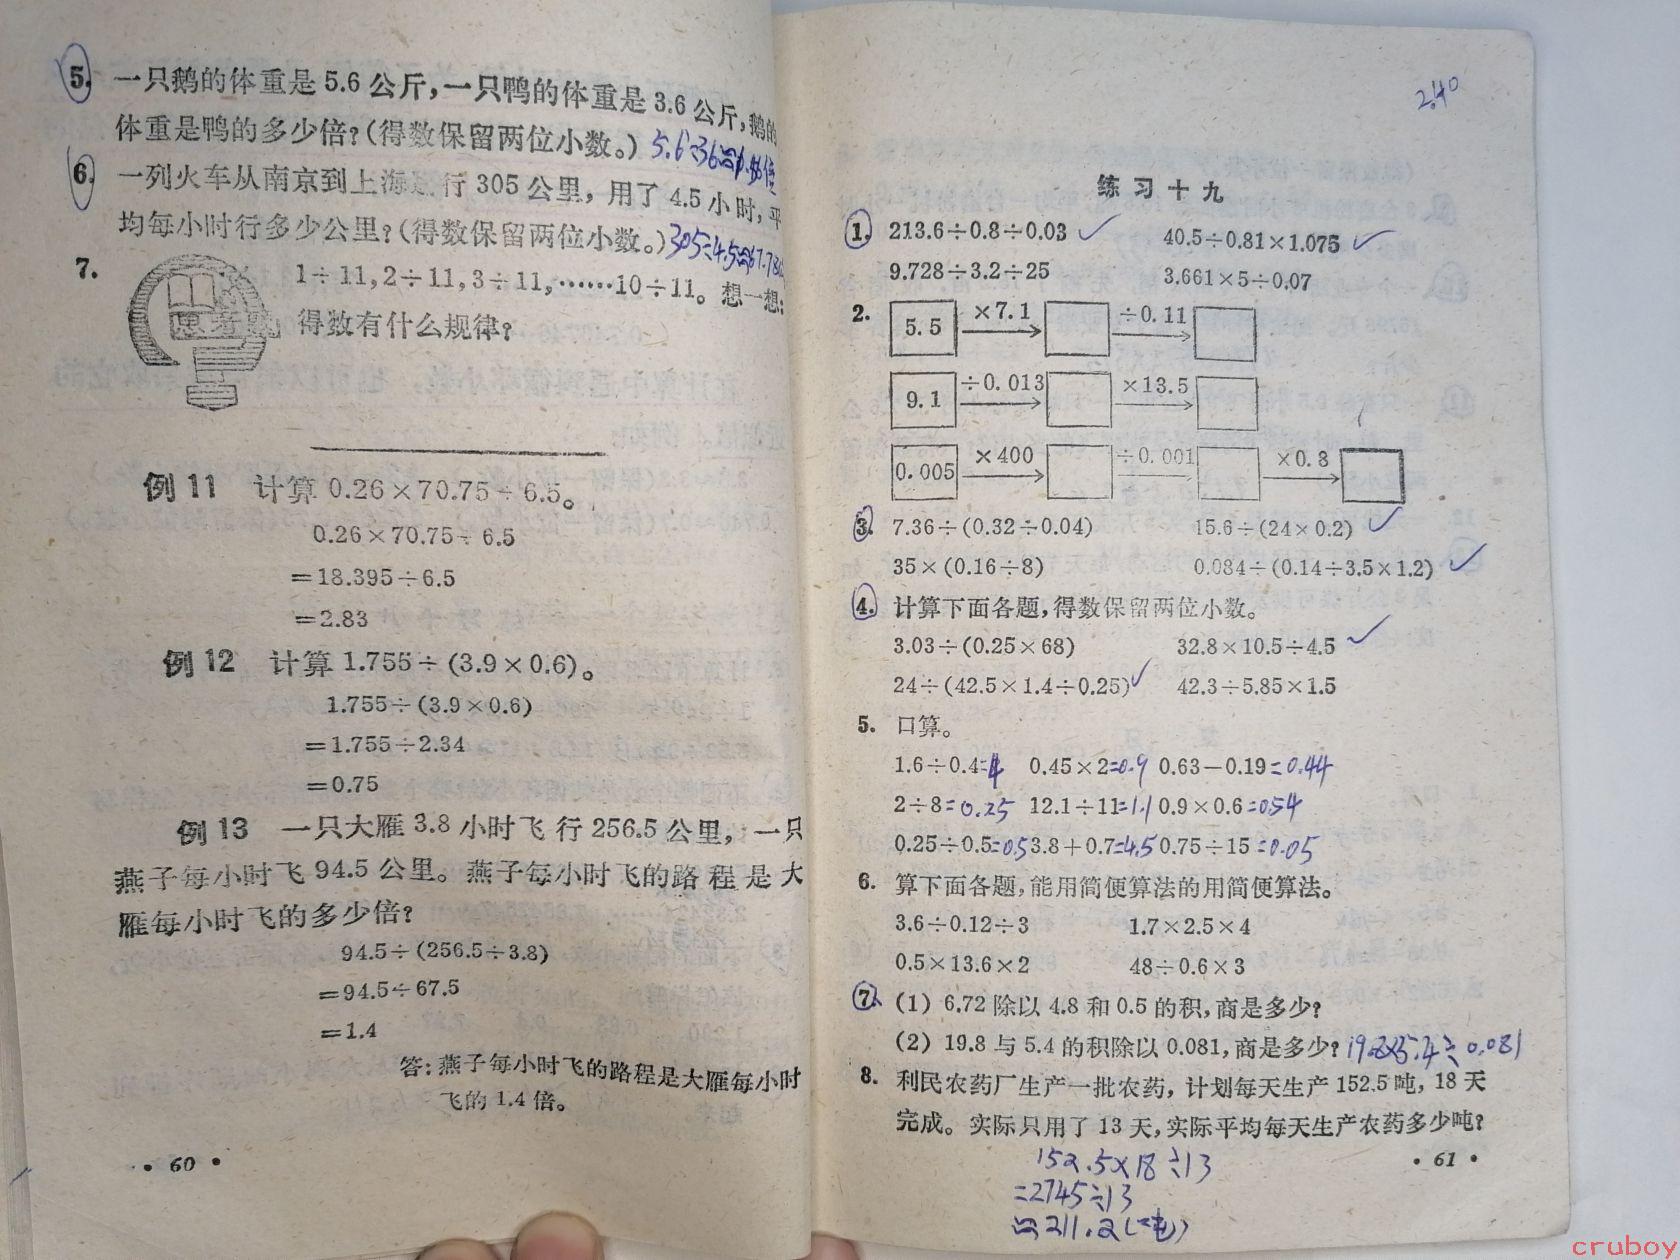 5. 一只鹅的体重是 5.6 公斤，一只鸭的体重是 3.6 公斤，鹅的
体重是鸭的多少倍？(得数保留两位小数。)
6. 一列火车从南京到上海 行 305 公里，用了 4.5 小时，平
均每小时行多少公里？(得数保留两位小数。) 305÷4.5≈67.78
7. 1÷11, 2÷11, 3÷11, ……10÷11。想一想：
思考题
得数有什么规律？
例 11 计算 0.26×70.75÷6.5。
0.26×70.75÷6.5
=18.395÷6.5
=2.83
例 12 计算 1.755÷(3.9×0.6)。
1.755÷(3.9×0.6)
=1.755÷2.34
=0.75
例 13 一只大雁 3.8 小时飞行 256.5 公里，一只
燕子每小时飞 94.5 公里。燕子每小时飞的路程是大
雁每小时飞的多少倍？
94.5÷(256.5÷3.8)
=94.5÷67.5
=1.4
答：燕子每小时飞的路程是大雁每小时
飞的 1.4 倍。
• 60 •
2.40
练习十九
1. 213.6÷0.8÷0.03 40.5÷0.81×1.075
9.728÷3.2÷25 3.661×5÷0.07
2. 5.5 ×7.1 ÷0.11
9.1 ÷0.013 ×13.5
0.005 ×400 ÷0.001 ×0.8
3. 7.36÷(0.32÷0.04) 15.6÷(24×0.2)
35×(0.16÷8) 0.084÷(0.14÷3.5×1.2)
4. 计算下面各题，得数保留两位小数。
3.03÷(0.25×68) 32.8×10.5÷4.5
24÷(42.5×1.4÷0.25) 42.3÷5.85×1.5
5. 口算。
1.6÷0.4=4 0.45×2=0.9 0.63−0.19=0.44
2÷8=0.25 12.1÷11=1.1 0.9×0.6=0.54
0.25÷0.5=0.5 3.8+0.7=4.5 0.75÷15=0.05
6. 算下面各题，能用简便算法的用简便算法。
3.6÷0.12÷3 1.7×2.5×4
0.5×13.6×2 48÷0.6×3
7. (1) 6.72 除以 4.8 和 0.5 的积，商是多少？
(2) 19.8 与 5.4 的积除以 0.081，商是多少？ 19.8×5.4÷0.081
8. 利民农药厂生产一批农药，计划每天生产 152.5 吨，18 天
完成。实际只用了 13 天，实际平均每天生产农药多少吨？
152.5×18÷13
=2745÷13
≈211.2(吨)
• 61 •
cruboy